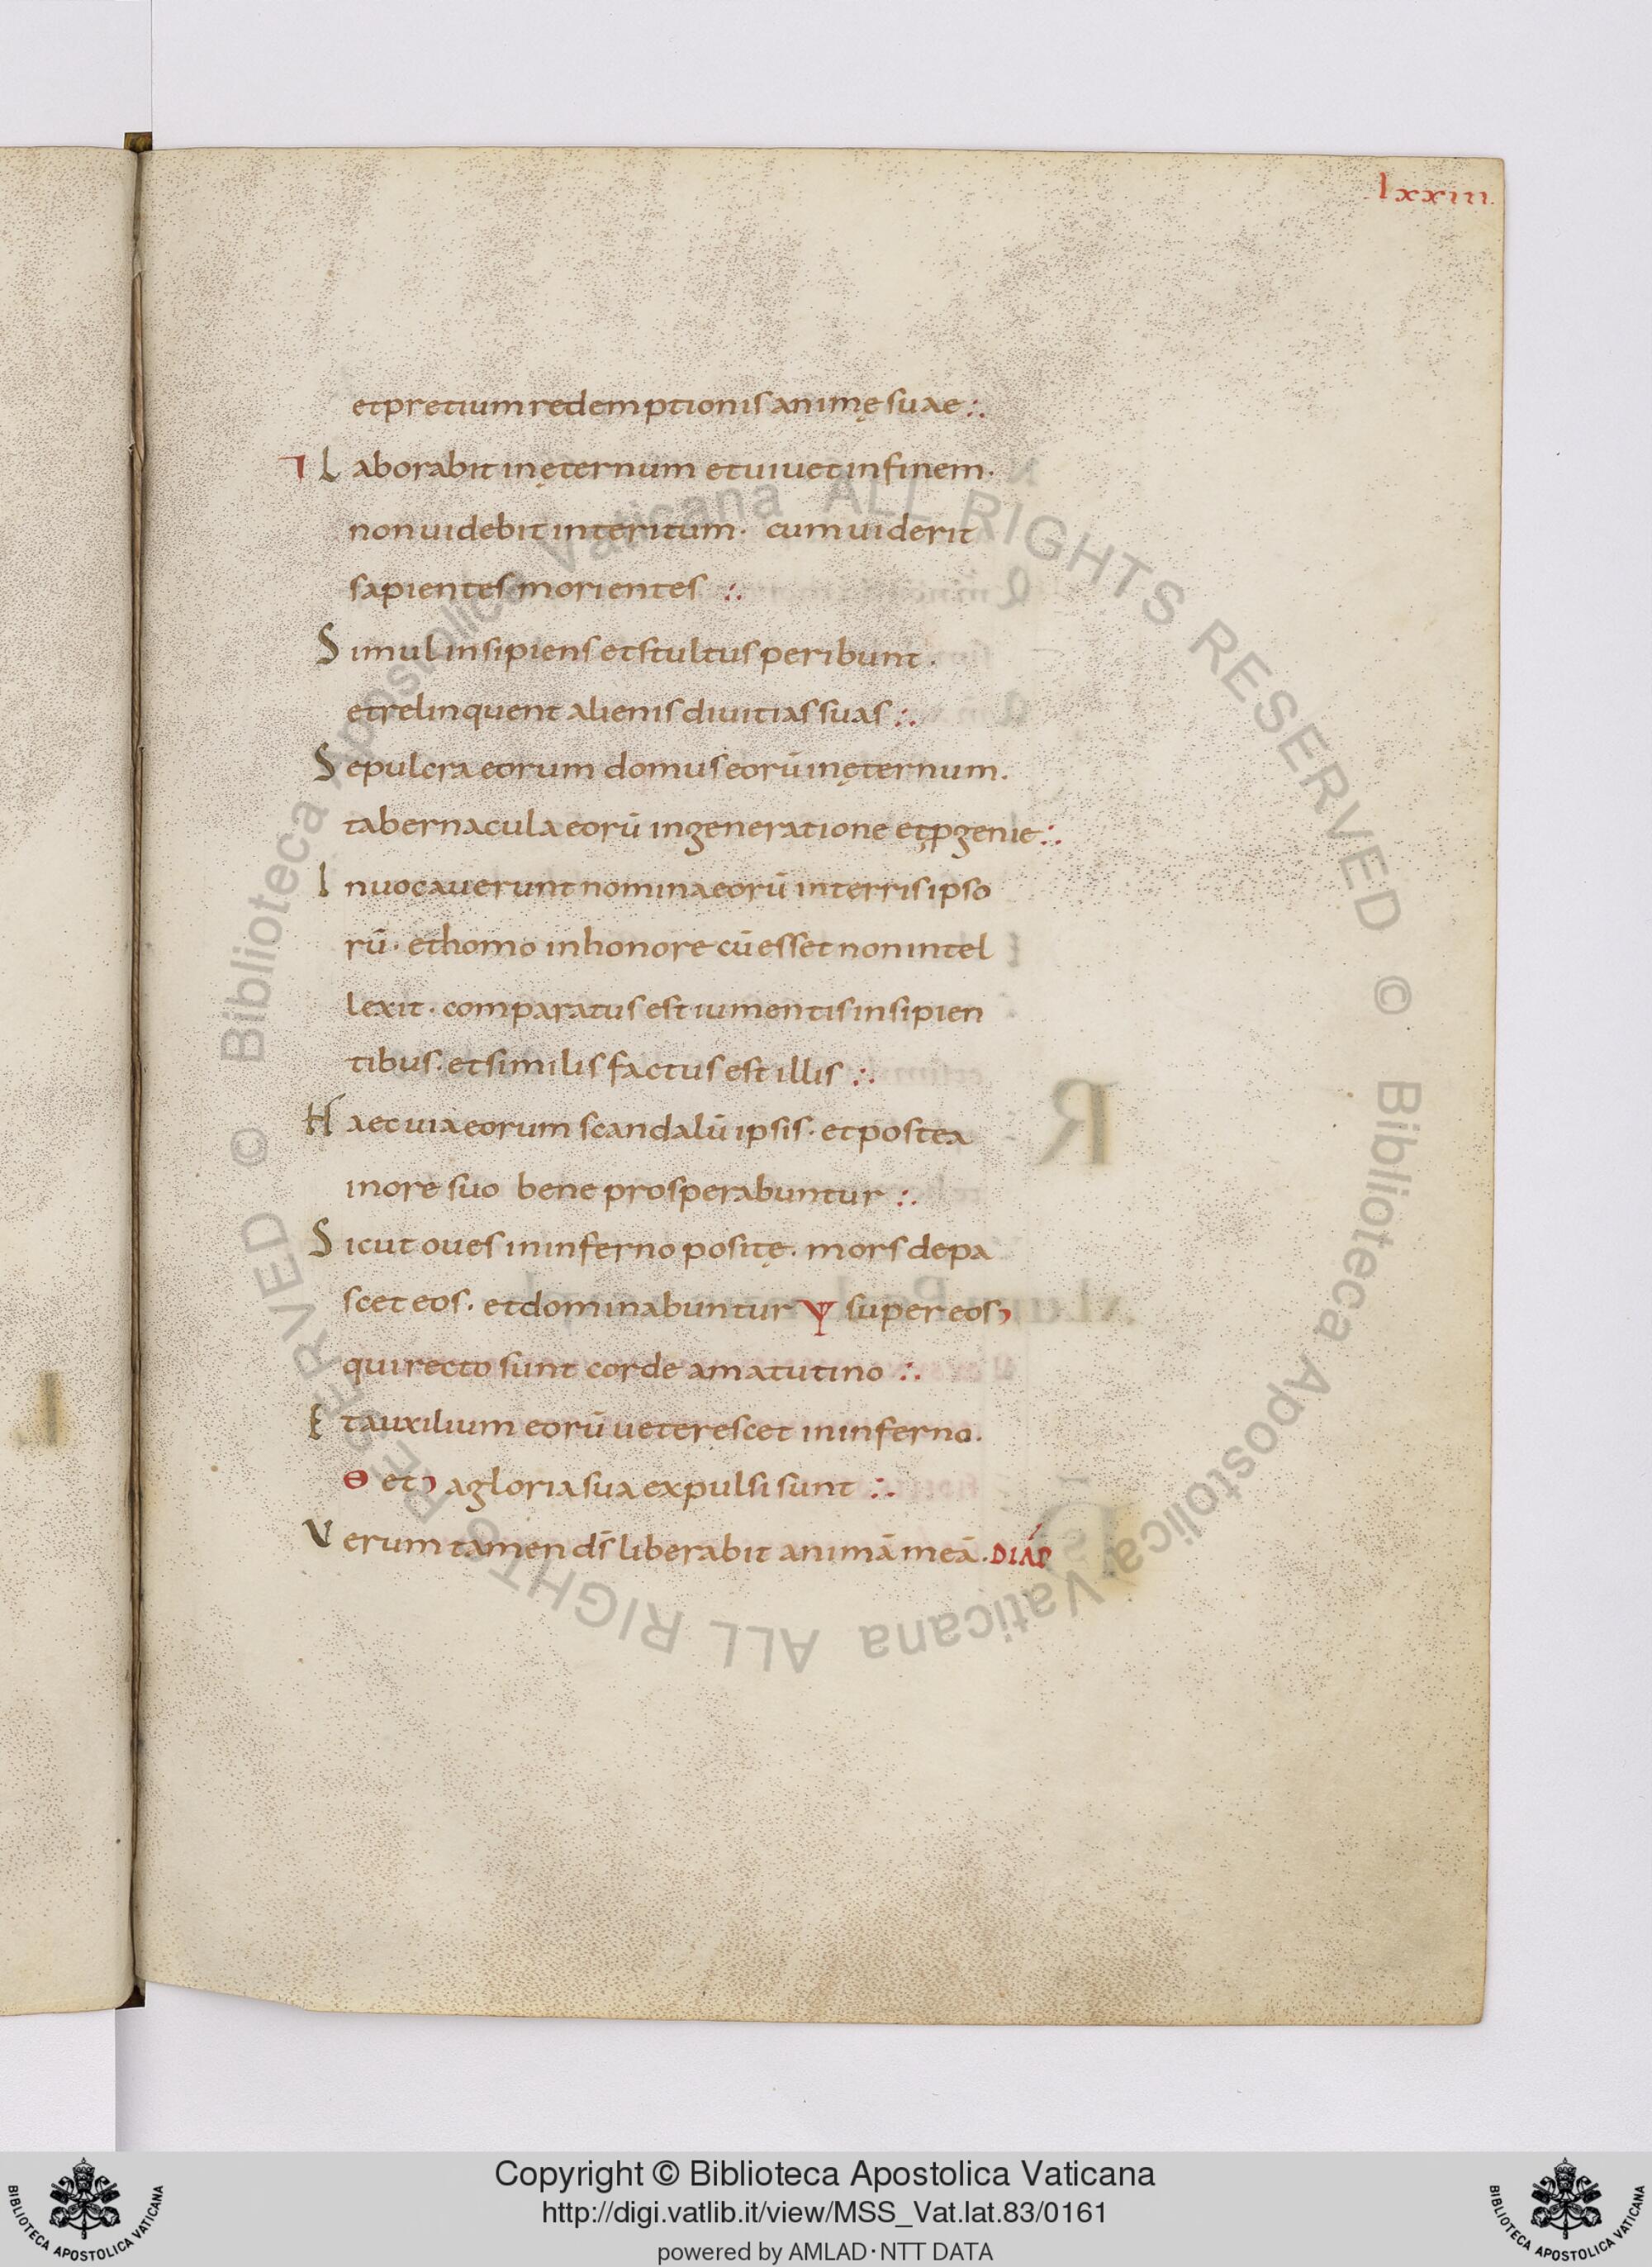 .lxxiii.
et pretium redemptionis animę suae :.
⁊ Laborabit in ęternum et uiuet in finem.
non uidebit interitum. cum uiderit
sapientes morientes :.
Simul insipiens et stultus peribunt.
et relinquent alienis diuitias suas :.
Sepulcra eorum domus eorū in ęternum.
tabernacula eorū in generatione et ꝓgenie :.
Inuocauerunt nomina eorū in terris ipso
rū. et homo in honore cū esset non intel
lexit. comparatus est iumentis insipien
tibus. et similis factus est illis :.
Haec uia eorum scandalū ipsis. et postea
in ore suo bene prosperabuntur :.
Sicut oues in inferno positę. mors depa
scet eos. et dominabuntur Ψ super eos,
qui recto sunt corde a matutino :.
Et auxilium eorū ueterescet in inferno.
Θ et, a gloria sua expulsi sunt :.
Verum tamen d̄s liberabit animā meā. DIAP
© Biblioteca Apostolica Vaticana ALL RIGHTS RESERVED © Biblioteca Apostolica Vaticana ALL RIGHTS RESERVED
Copyright © Biblioteca Apostolica Vaticana
http://digi.vatlib.it/view/MSS_Vat.lat.83/0161
powered by AMLAD·NTT DATA
BIBLIOTECA APOSTOLICA VATICANA
BIBLIOTECA APOSTOLICA VATICANA